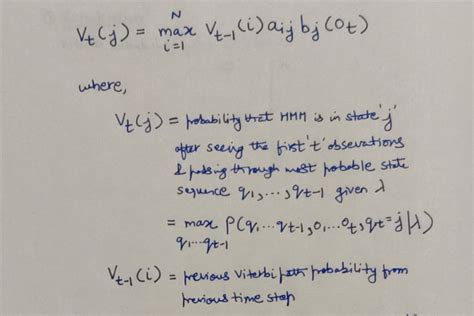 V_t(j) = max_{i=1}^{N} V_{t-1}(i) a_{ij} b_j(O_t)
where,
V_t(j) = probability that HMM is in state 'j'
after seeing the first 't' observations
& passing through most probable state
sequence q_1, ..., q_{t-1} given λ
= max_{q_1...q_{t-1}} P(q_1...q_{t-1}, o_1...o_t, q_t = j | λ)
V_{t-1}(i) = previous Viterbi path probability from
previous time step